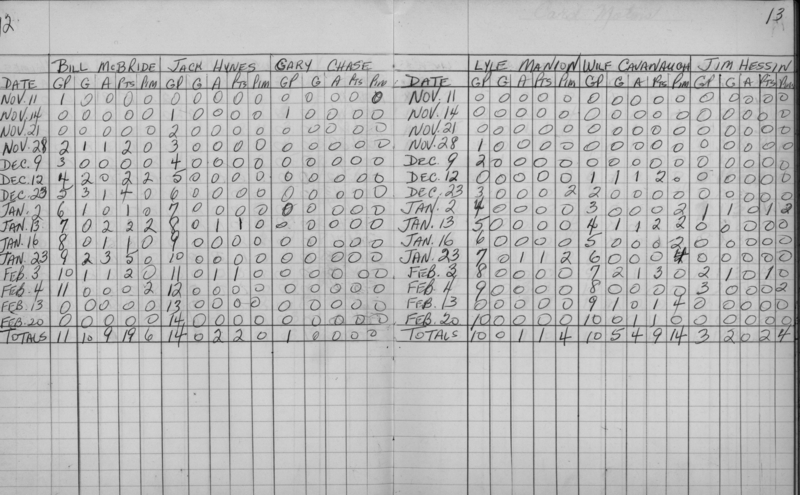 12
13
BILL McBRIDE JACK HYNES GARY CHASE LYLE MANION WILF CAVANAUGH JIM HESSIN
DATE GP G A Pts Pim GP G A Pts Pim GP G A Pts Pim DATE GP G A Pts Pim GP G A Pts Pim GP G A Pts Pim
NOV. 11 1 0 0 0 0 0 0 0 0 0 0 0 0 0 0 NOV. 11 0 0 0 0 0 0 0 0 0 0 0 0 0 0 0
NOV. 14 0 0 0 0 0 1 0 0 0 0 1 0 0 0 0 NOV. 14 0 0 0 0 0 0 0 0 0 0 0 0 0 0 0
NOV. 21 0 0 0 0 0 2 0 0 0 0 0 0 0 0 0 NOV. 21 0 0 0 0 0 0 0 0 0 0 0 0 0 0 0
NOV. 28 2 1 1 2 0 3 0 0 0 0 0 0 0 0 0 NOV. 28 1 0 0 0 0 0 0 0 0 0 0 0 0 0 0
DEC. 9 3 0 0 0 0 4 0 0 0 0 0 0 0 0 0 DEC. 9 2 0 0 0 0 0 0 0 0 0 0 0 0 0 0
DEC. 12 4 2 0 2 2 5 0 0 0 0 0 0 0 0 0 DEC. 12 0 0 0 0 0 1 1 1 2 0 0 0 0 0 0
DEC. 23 5 3 1 4 0 6 0 0 0 0 0 0 0 0 0 DEC. 23 3 0 0 0 2 2 0 0 0 0 0 0 0 0 0
JAN. 2 6 1 0 1 0 7 0 0 0 0 0 0 0 0 0 JAN. 2 4 0 0 0 0 3 0 0 0 2 1 1 0 1 2
JAN. 13 7 0 2 2 2 8 0 1 1 0 0 0 0 0 0 JAN. 13 5 0 0 0 0 4 1 1 2 2 0 0 0 0 0
JAN. 16 8 0 1 1 0 9 0 0 0 0 0 0 0 0 0 JAN. 16 6 0 0 0 0 5 0 0 0 2 0 0 0 0 0
JAN. 23 9 2 3 5 0 10 0 0 0 0 0 0 0 0 0 JAN. 23 7 0 1 1 2 6 0 0 0 4 0 0 0 0 0
FEB. 3 10 1 1 2 0 11 0 1 1 0 0 0 0 0 0 FEB. 3 8 0 0 0 0 7 2 1 3 0 2 1 0 1 0
FEB. 4 11 0 0 0 2 12 0 0 0 0 0 0 0 0 0 FEB. 4 9 0 0 0 0 8 0 0 0 0 3 0 0 0 2
FEB. 13 0 0 0 0 0 13 0 0 0 0 0 0 0 0 0 FEB. 13 0 0 0 0 0 9 1 0 1 4 0 0 0 0 0
FEB. 20 0 0 0 0 0 14 0 0 0 0 0 0 0 0 0 FEB. 20 10 0 0 0 0 10 0 1 1 0 0 0 0 0 0
TOTALS 11 10 9 19 6 14 0 2 2 0 1 0 0 0 0 TOTALS 10 0 1 1 4 10 5 4 9 14 3 2 0 2 4